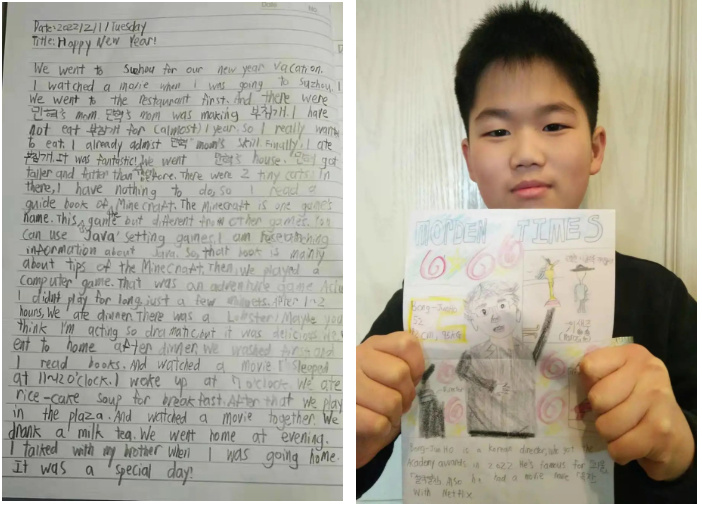 Date: 2022/2/1/Tuesday
Title: Happy New Year!
We went to Suzhou for our new year vacation.
I watched a movie when I was going to Suzhou.
We went to the restaurant first. And there were
민혁's mom. 민혁's mom was making 부침개. I have
not eat 부침개 for (almost) 1 year. so I really
to eat. I already admit 민혁 mom's skill. Finally, I ate
부침개. It was fantastic! We went 민혁's house. 민혁 got
taller and fatter than before. There were 2 tiny cats. In
there, I have nothing to do, so I read a
guide book of Minecraft. The Minecraft is one game's
name. This game but different from other games. You
can use 'Java' setting games. I am researching
information about Java. So, that book is mainly
about tips of the Minecraft. Then, we played a
computer game. That was an adventure game.
I didn't play for long, just a few After 1~2
hours, We ate dinner. There was a Lobster! Maybe you
think I'm acting so dramatic, but it was delicious. We
eat to home after dinner. We washed and
I read books. And watched a movie I sleeped
at 11~12 o'clock. I woke up at 7 o'clock. We ate
rice-cake soup for breakfast. After that we play
in the plaza. And watched a movie together. We
drank a milk tea. We went home at evening.
I talked with my brother when I was going home.
It was a special day!
MODERN TIMES
Bong-Joon
Bong-Joon Ho is a Korean director. He got the
Academy awards in 2022 He's famous for 괴물,
Also he had a movie have
with Netflix